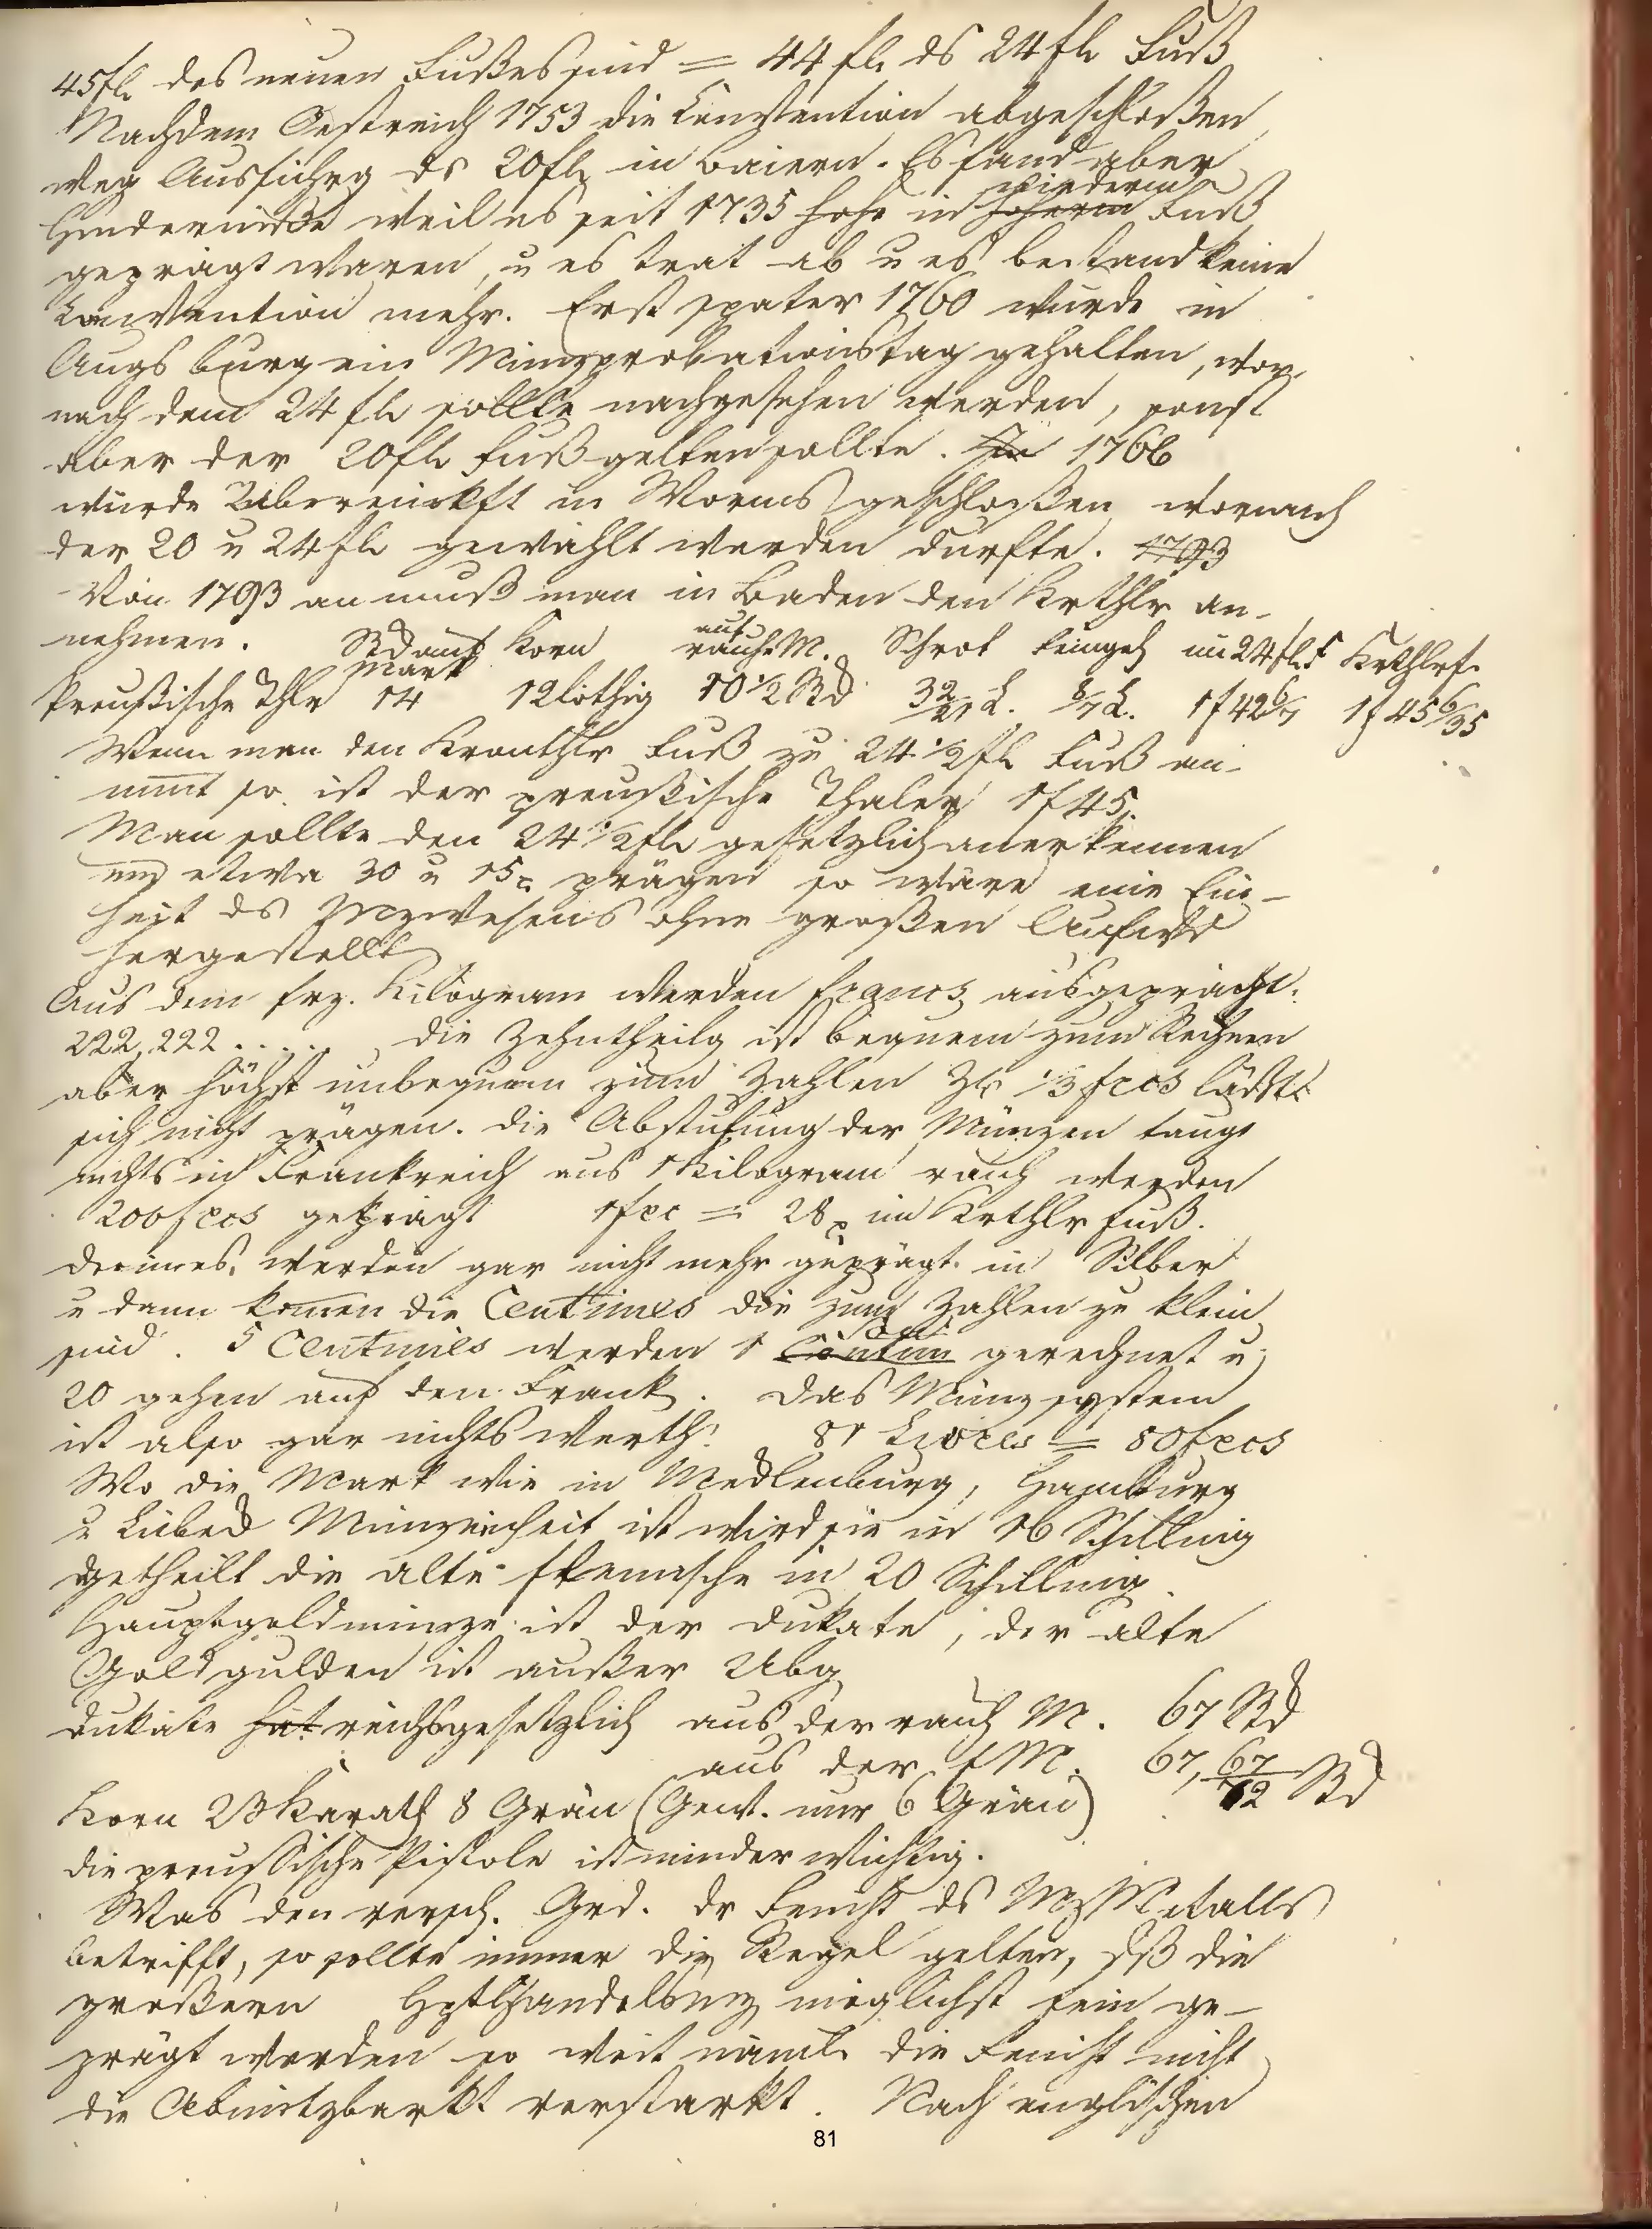 45 fl. des neuen Fußes sind = 44 fl. ds 24 fl. Fuß
Nachdem Oestreich 1753 die Konvention abgeschloßen
weg Ausführg ds 20 fl. in Baiern. Es fand aber
Hinderniße weil es seit 1735 hohe in niederm Fuß
geprägt waren, u es trat ab u es bestand keine
Konvention mehr. Erst spater 1760 wurde in
Augsburg ein Münzprobationstag gehalten, wor
nach dem 24 fl. sollte nachgesehen werden, sonst
aber der 20 fl. Fuß gelten sollte. In 1766
wurde Übereinkft in Worms geschloßen wornach
der 20 u 24 fl. gewählt werden durfte. 1793
Von 1793 an muß man in Baden den Krthlr an-
nehmen. Stck auf Mark Korn auf rauhe M. Schrot Feingeh im 24 fl. F Krthlrf.
Preußische Thlr 14 12 löthig 10 1/2 Stck 32/21 L. 8/7 L. 1 f 42 6/7 1 f 45 6/35
Wenn man den Kronthlr Fuß zu 24 1/2 fl. Fuß an-
nimt so ist der preußische Thaler 1 f 45.
Man sollte den 24 1/2 fl. gesetzlich anerkennen
und etwa 30 u 15 x prägen so wäre eine Ein-
heit ds Mzwesens ohne großen Aufwd
hergestellt
Aus dem frz. Kilogram werden francs ausgeprägt.
222,222..... die Zehntheilg ist bequem zum Rechnen
aber höchst unbequem zum Zahlen Z. 1/3 frcs läßt
sich nicht prägen. Die Abstufung der Münzen taugt
nichts in Frankreich aus 1 Kilogram rauh werden
200 frcs geprägt 1 frc = 28 x im Krthlr Fuß.
Decimes. werden gar nicht mehr geprägt in Silber
u dann komen die Centimes die zum Zahlen zu klein
sind. 5 Centimes werden 1 Sou gerechnet u
20 gehen auf den Frank. Das Münzsystem
ist also gar nichts werth. 81 Livres = 80 frcs
Wo die Mark wie in Mecklenburg, Hamburg
u Lübeck Münzeinheit ist wird sie in 16 Schilling
getheilt die alte flämische in 20 Schilling.
Hauptgoldmünze ist der Dukate, der alte
Goldgulden ist außer Übg
Dukate hat reichsgesetzlich aus der rauh M. 67 Stck
aus der f M. 67, 67/72 Stck
Korn 23 Karath 8 Grän (Gew. nur 6 Grän)
die preussische Pistole ist minder wichtig.
Was den versch. Grd. dr Feinht ds MzMetalls
betrifft, so sollte immer die Regel gelten, dß die
großern HptHandelsmz möglichst fein ge-
prägt werden so weit näml. die Feinht nicht
die Abnutzbarkt verstarkt. Nach englischen
81